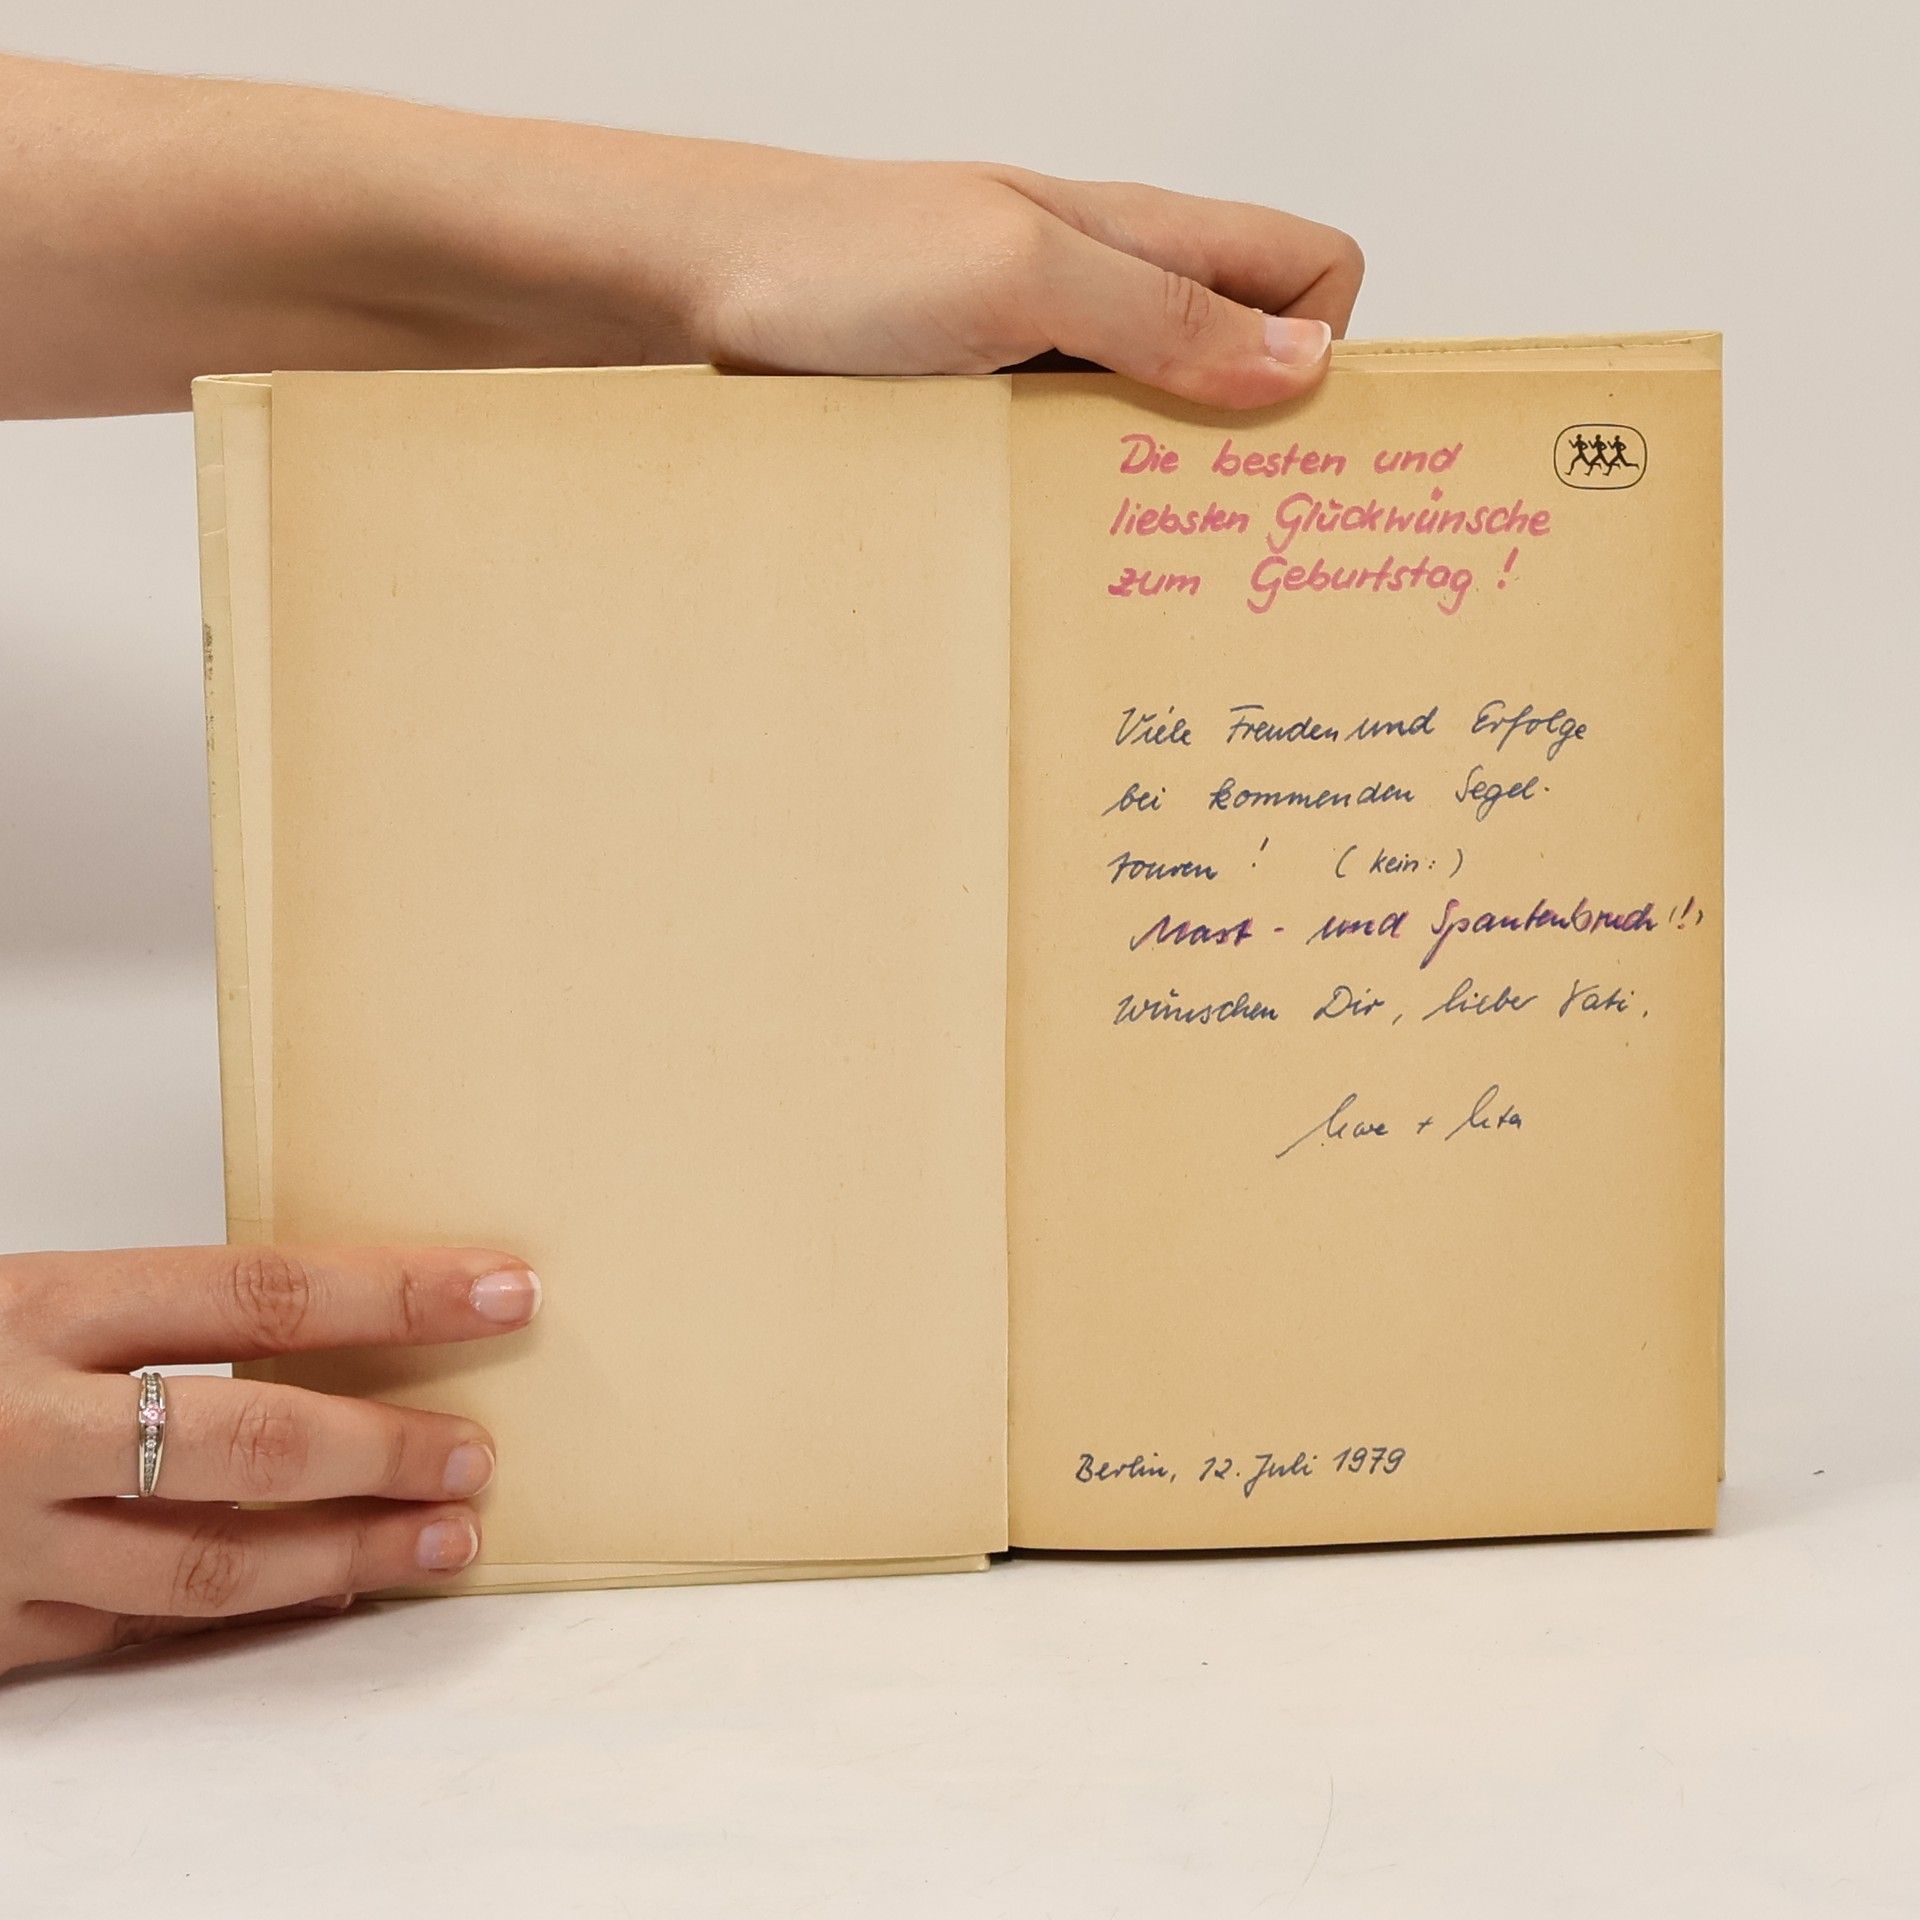 Die besten und
liebsten Glückwünsche
zum Geburtstag!
Viele Freuden und Erfolge
bei kommenden Segel-
touren! (kein:)
Mast- und Spantenbruch!!,
wünschen Dir, lieber Vati,
Uwe + Uta
Berlin, 12. Juli 1979